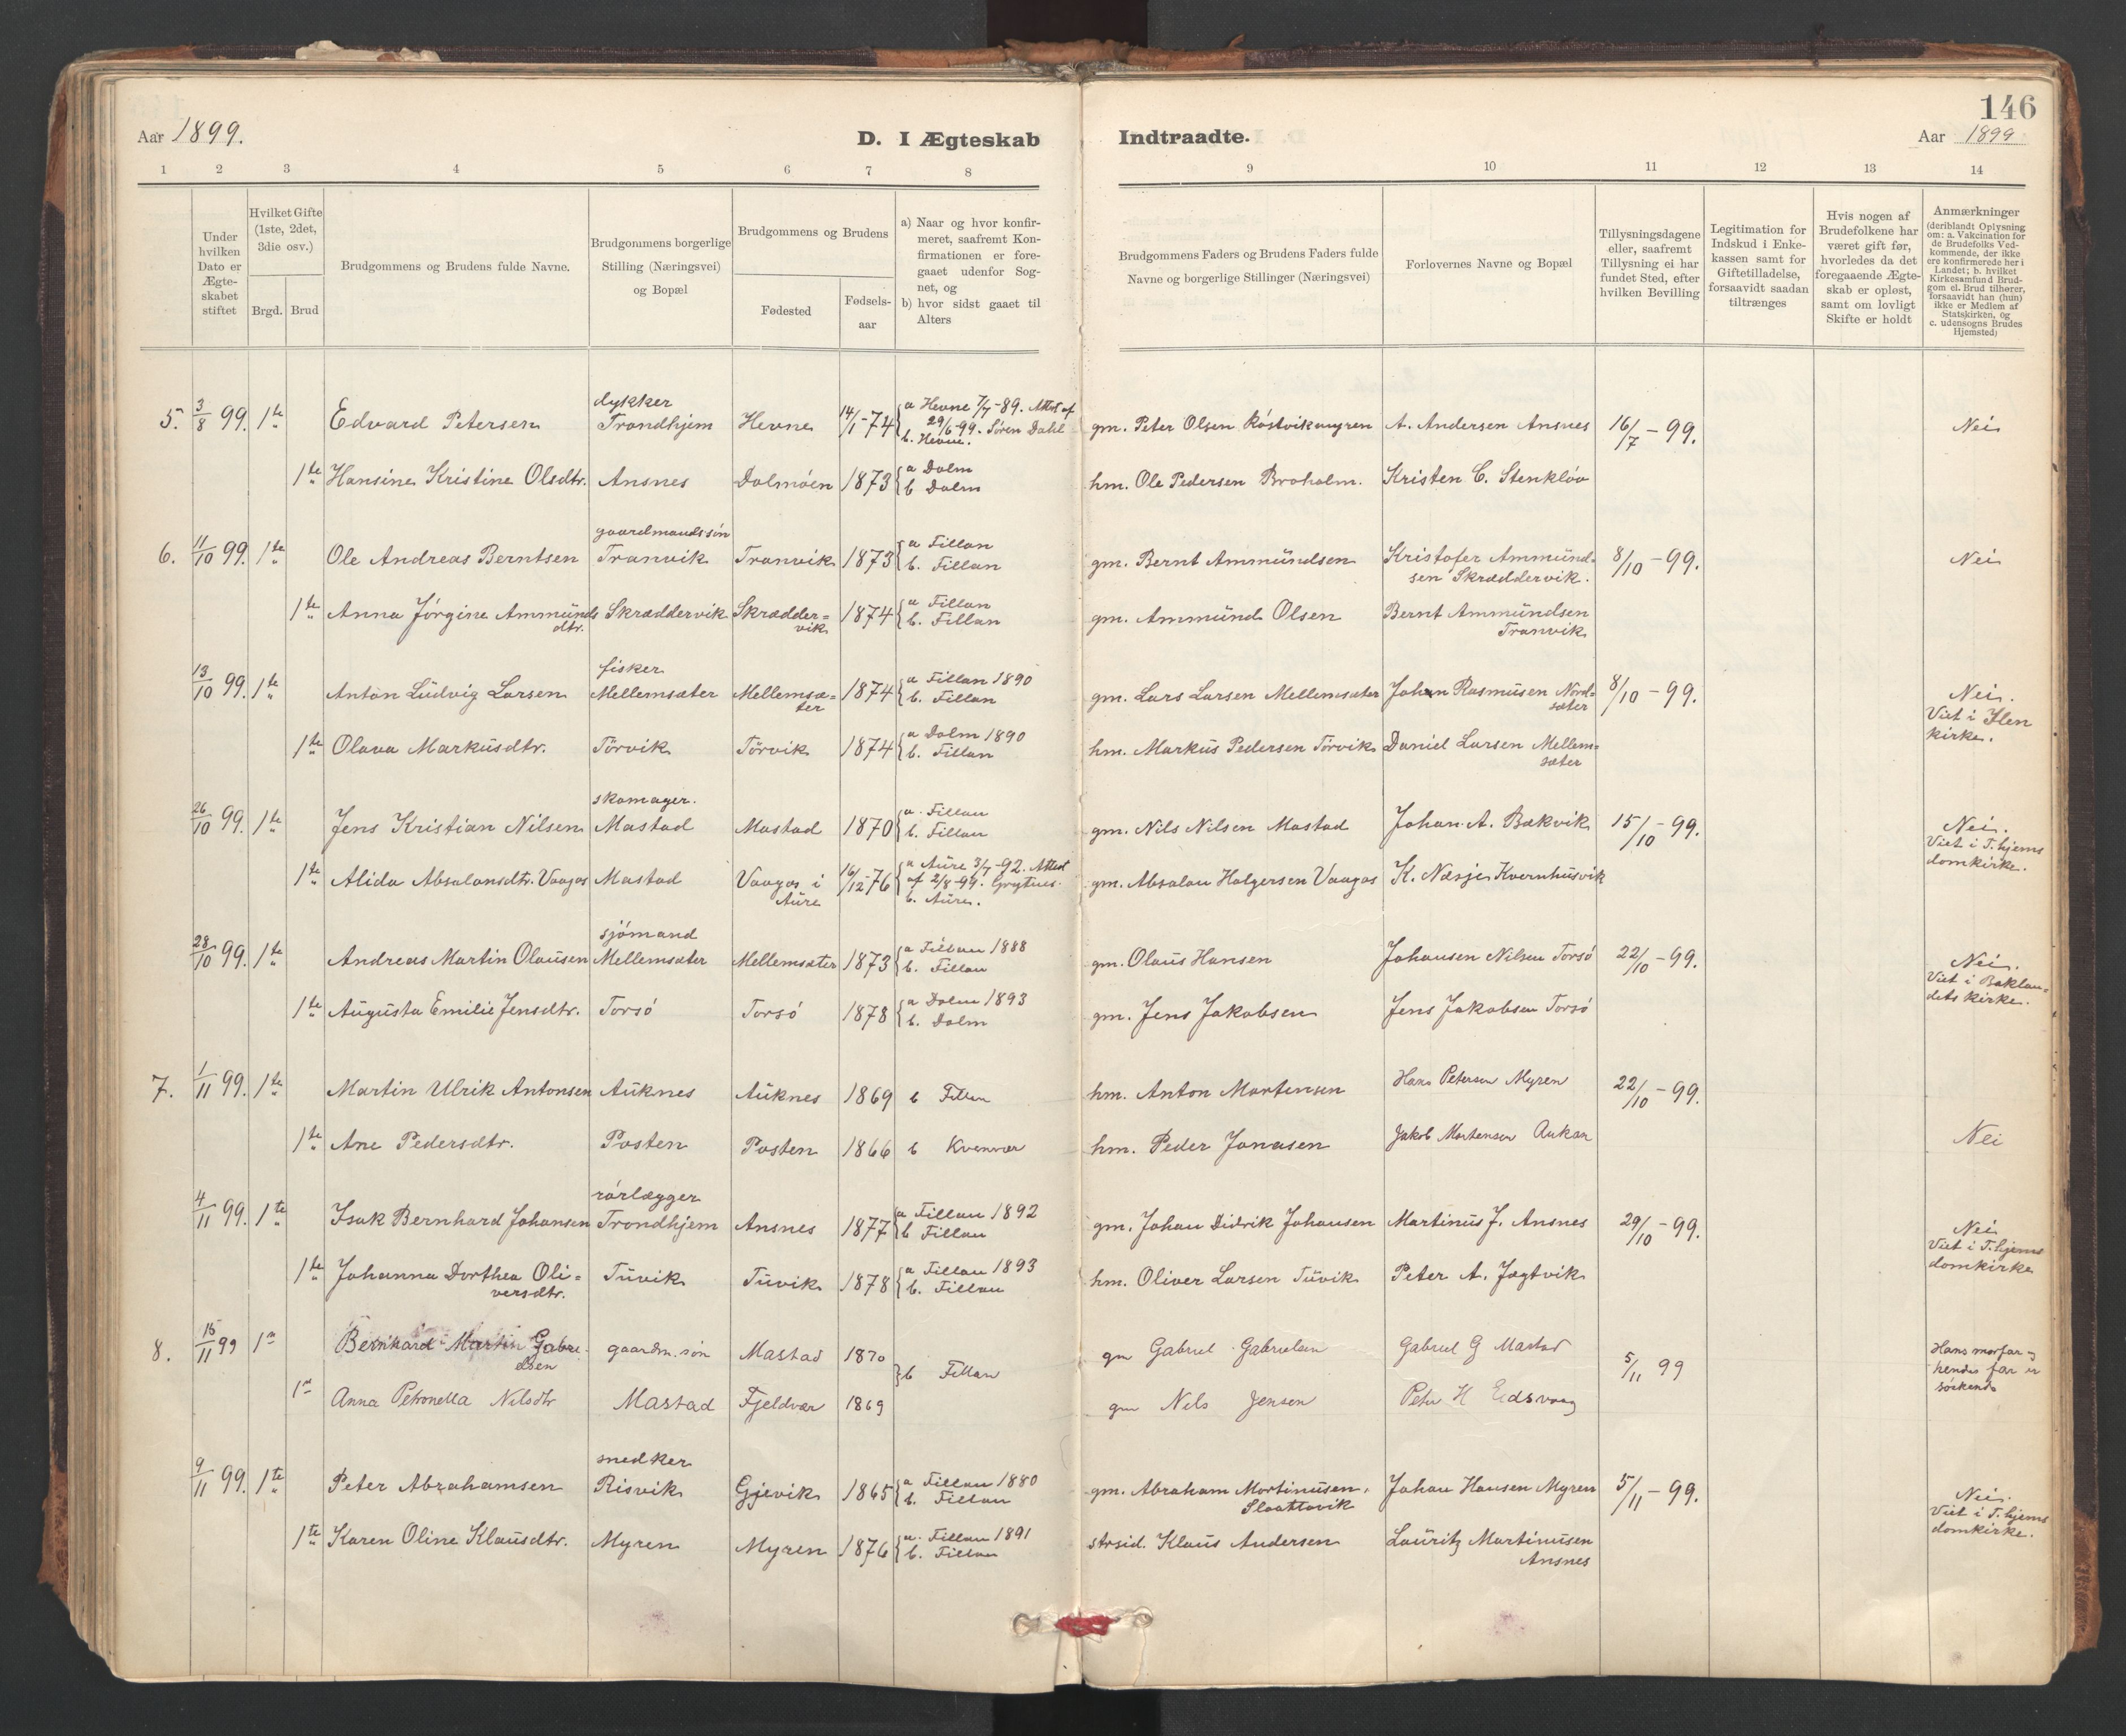 146
Aar 1899.
D. I Ægteskab
Indtraadte.
Aar 1899
1 2 3 4 5 6 7 8 9 10 11 12 13 14
Under hvilken Dato er Ægteskabet stiftet
Hvilket Gifte (1ste, 2det, 3die osv.)
Brgd. Brud
Brudgommens og Brudens fulde Navne.
Brudgommens borgerlige Stilling (Næringsvei) og Bopæl
Brudgommens og Brudens
Fødested
Fødselsaar
a) Naar og hvor konfirmeret, saafremt Konfirmationen er foregaaet udenfor Sognet, og
b) hvor sidst gaaet til Alters
Brudgommens Faders og Brudens Faders fulde Navne og borgerlige Stillinger (Næringsvei)
Forlovernes Navne og Bopæl
Tillysningsdagene eller, saafremt Tillysning ei har fundet Sted, efter hvilken Bevilling
Legitimation for Indskud i Enkekassen samt for Giftetilladelse, forsaavidt saadan tiltrænges
Hvis nogen af Brudefolkene har været gift før, hvorledes da det foregaaende Ægteskab er opløst, samt om lovligt Skifte er holdt
Anmærkninger (deriblandt Oplysning om: a. Vakcination for de Brudefolks Vedkommende, der ikke ere konfirmerede her i Landet; b. hvilket Kirkesamfund Brudgom el. Brud tilhører, forsaavidt han (hun) ikke er Medlem af Statskirken, og c. udensogns Brudes Hjemsted)
5. 3/8 99. 1te Edvard Petersen dykker Trondhjem Hevne 14/1-74 a Hevne 7/7-89. Attest af 29/6-99. Søren Dahl b. Hevne. gm. Peter Olsen Róstvikmyren A. Andersen Ansnes 16/7 - 99. Nei
1te Hansine Kristine Olsdtr. Ansnes Dolmöen 1873 a Dolm b Dolm hm. Ole Pedersen Broholm. Kristen C. Stenklöv
6. 11/10 99. 1te Ole Andreas Berntsen gaardmandssön Tranvik Tranvik 1873 a Fillan b. Fillan gm. Bernt Ammundsen Kristofer Ammundsen Skræddervik. 8/10 - 99. Nei
1te Anna Jörgine Ammundsdtr. Skræddervik Skræddervik 1874 a Fillan b. Fillan gm. Ammund Olsen Bernt Ammundsen Tranvik
13/10 99. 1te Anton Ludvig Larsen fisker Mellemsæter Mellemsæter 1874 a Fillan 1890 b. Fillan gm. Lars Larsen Mellemsæter Johan Rasmusen Nordsæter 8/10 - 99. Nei. Viet i Ilen kirke.
1te Olava Markusdtr. Törvik Törvik 1874 a Dolm 1890 b. Fillan hm. Markus Pedersen Törvik Daniel Larsen Mellemsæter
26/10 99. 1te Jens Kristian Nilsen skomager. Mastad Mastad 1870 a. Fillan b. Fillan gm. Nils Nilsen Mastad Johan A. Bækvik 15/10 - 99. Nei. Viet i T.hjems domkirke.
1te Alida Absalonsdtr. Vaagos Mastad Vaagos i Aure 16/12-76 a Aure 3/7-92. Attest af 2/8-99. Grytnes. b. Aure. gm. Absalon Holgersen Vaagos K. Næsje Kvernhusvik
28/10 99. 1te Andreas Martin Olausen sjömand Mellemsæter Mellemsæter 1873 a Fillan 1888 b. Fillan gm. Olaus Hansen Johansen Nilsen Torsö 22/10 - 99. Nei. Viet i Baklandets kirke.
1te Augusta Emilie Jensdtr. Torsö Torsö 1878 a Dolm 1893 b. Dolm gm. Jens Jakobsen Jens Jakobsen Torsö
7. 1/11 99. 1te Martin Ulrik Antonsen Auknes Auknes 1869 b Fillan hm. Anton Mortensen Hans Petersen Myren 22/10 - 99.
1te Ane Pedersdtr. Posten Posten 1866 b Kvenvær hm. Peder Jonasen Jakob Mortensen Aukan Nei
4/11 99. 1te Isak Bernhard Johansen rörlægger Trondhjem Ansnes 1877 a Fillan 1892 b Fillan gm. Johan Didrik Johansen Martinus J. Ansnes 29/10 - 99. Nei Viet i T.hjems domkirke
1te Johanna Dorthea Oliversdtr. Tuvik Tuvik 1878 a Fillan 1893 b. Fillan hm. Oliver Larsen Tuvik Peter A. Jægtvik
8. 15/11 99 1n Bernhard Martin Gabrielsen gaardm.søn Mastad 1870 b Fillan gm Gabriel Gabrielsen Gabriel G Mastad 5/11 99 Hans morfar og hendes far er sörkende
1n Anna Petronella Nilsdtr Mastad Fjeldvær 1869 gm Nils Jensen Peter H Eidsvaag
9/11 99. 1te Peter Abrahamsen snedker Risvik Gjevik 1865 a Fillan 1880 b. Fillan gm. Abraham Mortinusen, Slaattavik Johan Hansen Myren 5/11 - 99. Nei. Viet i T.hjems domkirke.
1te Karen Oline Klausdtr. Myren Myren 1876 a. Fillan 1891 b. Fillan strsid. Klaus Andersen Lauritz Martinusen Ansnes